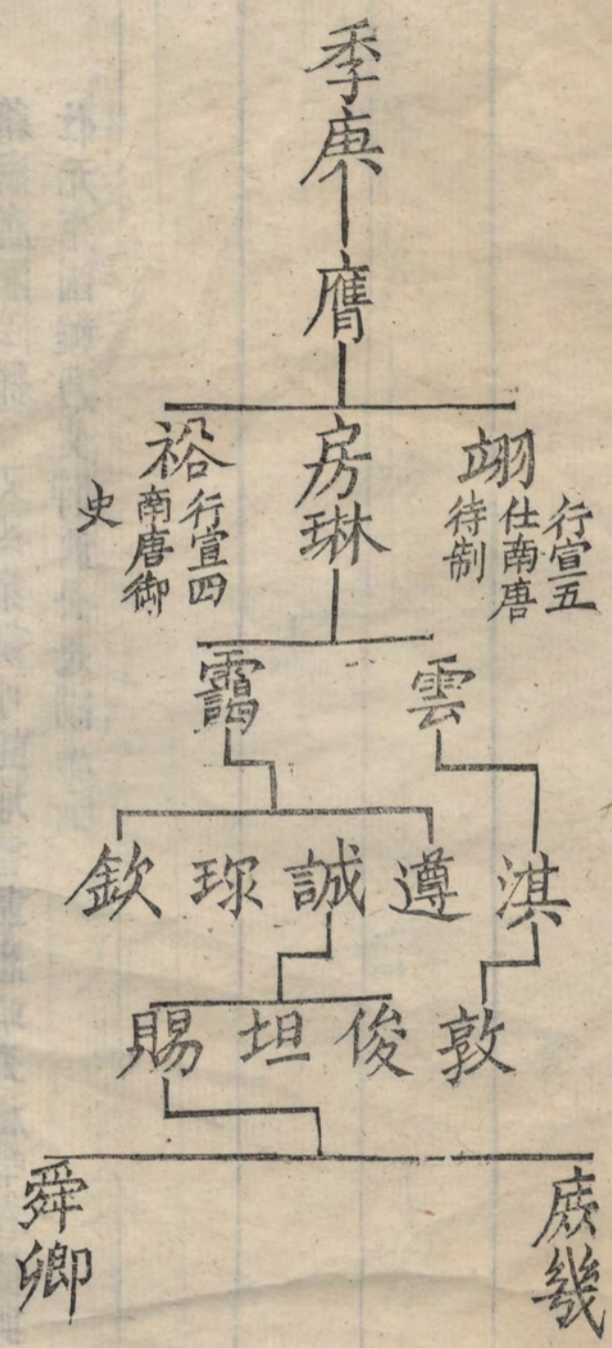 季庚
膺
翊
行宣五
仕南唐
待制
房琳
裕
行宣四
南唐御
史
雲
靄
淇
遵
誠
珎
欽
敦
俊
坦
賜
庻幾
舜卿